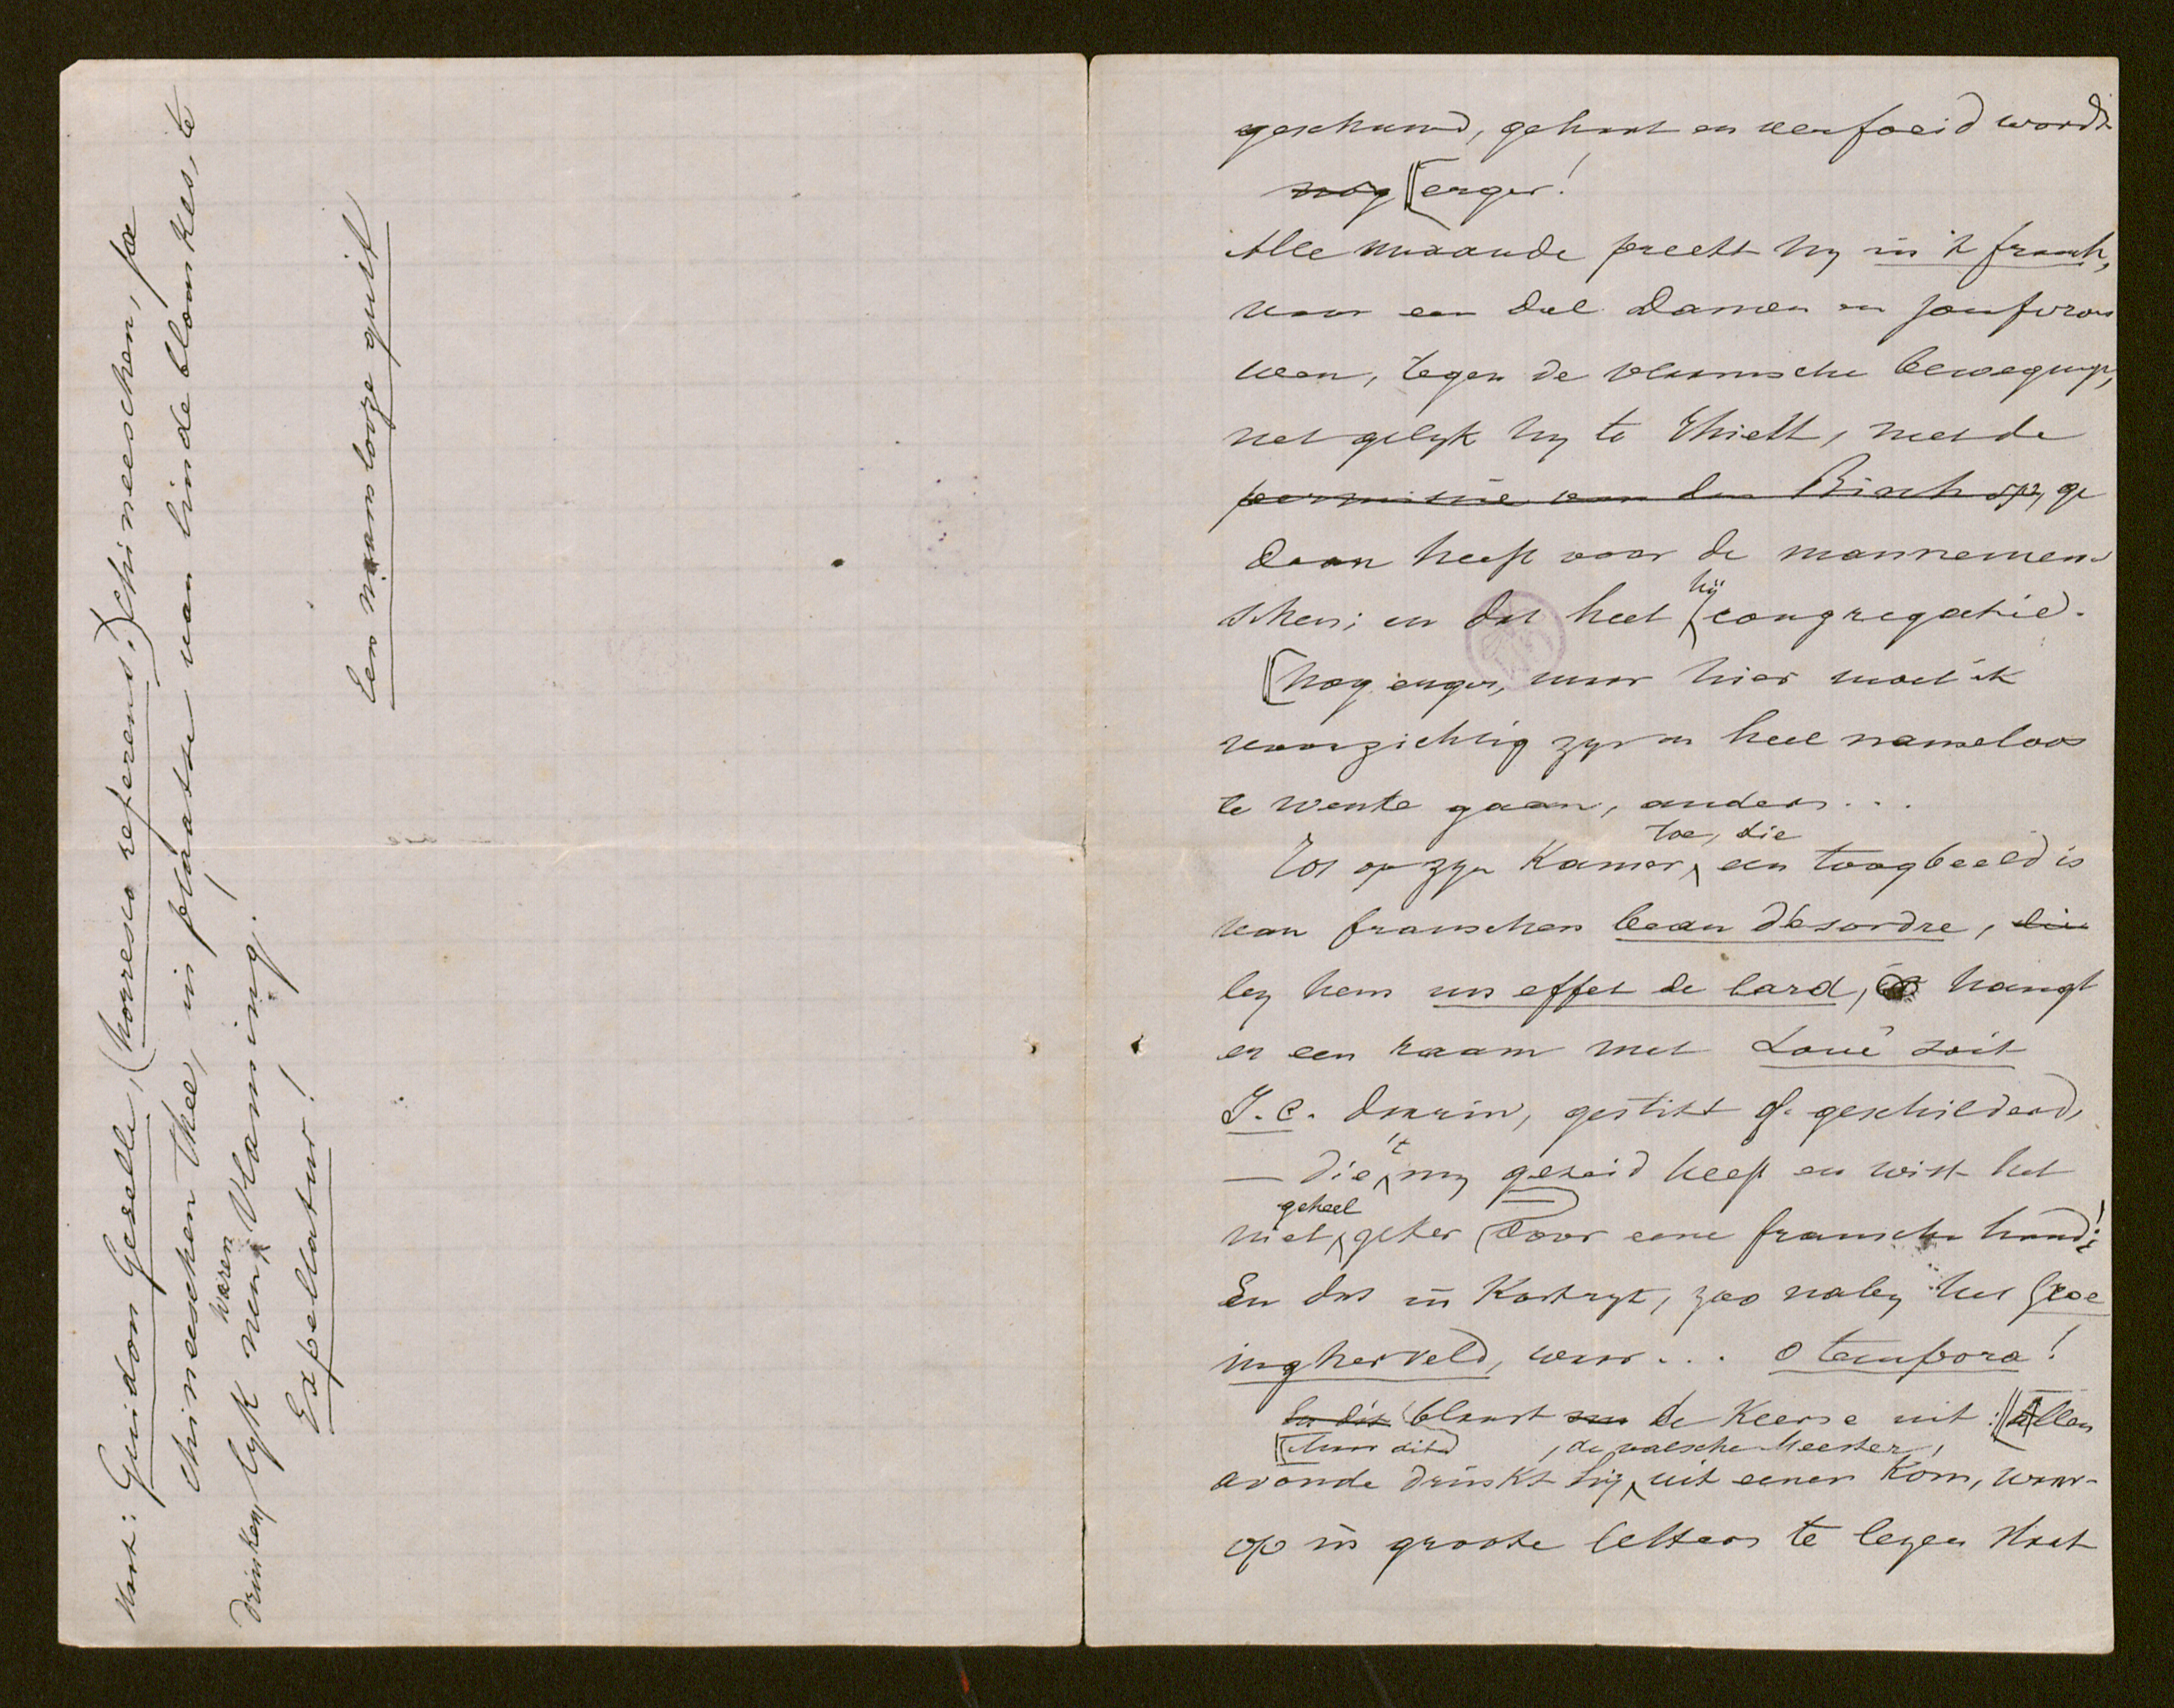 geschuwd, gehaat en verfoeid wordt
nog erger!
Alle maande preekt hy in 't fransch,
voor een deel Damen en jonfvrou
wen, tegen de vlaamsche beweging,
net gelyk hy te Thielt, met de
permissie van den Bisschop, ge
daan heeft voor de mannemen-
schen; en dat heet hij congregatie.
Nog erger, maar hier moet ik
voorzichtig zyn en heel nameloos
te werke gaan, anders...
Tot op zyn Kamer toe, die een toogbeeld is
van franschen beau désordre, die
by hem un effet de lard, hangt
er een raam met Loué soit
J. C. daarin, gestikt of geschilderd,
— die 't my gezeid heeft en wist het
niet geheel zeker door eene fransche hand!
En dat in Kortryk, zoo naby het Groe
ningherveld, waar... O tempora!
En dit blaast de Keerse uit: Allen
Maar dit , de valsche Meester,
avonde drinkt hij uit eenen Kom, waar-
op in groote letters te lezen staat
Guidon Gezelle, (horresco referens!) Chineeschen,
chineeschen thee, in plaatse van lindeblomkes, te
drinken, lyk nen waren Vlaming!
Expellatur!
Een naamlooze guit